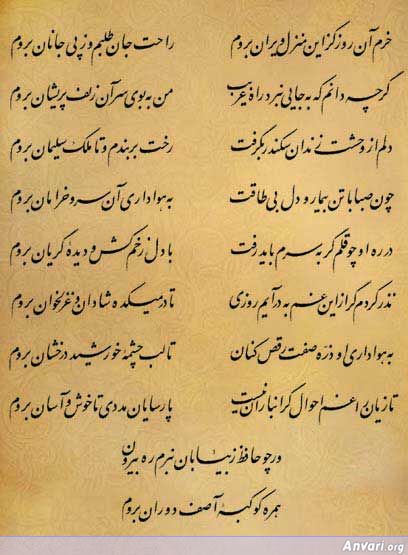 خرم آن روز کز این منزل ویران بروم راحت جان طلبم و ز پی جانان بروم
گر چه دانم که به جایی نبرد راه غریب من به بوی سر آن زلف پریشان بروم
دلم از وحشت زندان سکندر بگرفت رخت بربندم و تا ملک سلیمان بروم
چون صبا با تن بیمار و دل بی طاقت به هواداری آن سرو خرامان بروم
در ره او چو قلم گر به سرم باید رفت با دل زخم کش و دیده گریان بروم
نذر کردم گر از این غم به درآیم روزی تا در میکده شادان و غزلخوان بروم
به هواداری او ذره صفت رقص کنان تا لب چشمه خورشید درخشان بروم
تازیان را غم احوال گرانباران نیست پارسایان مددی تا خوش و آسان بروم
ور چو حافظ ز بیابان نبرم ره بیرون
همره کوکبه آصف دوران بروم
Anvari.org